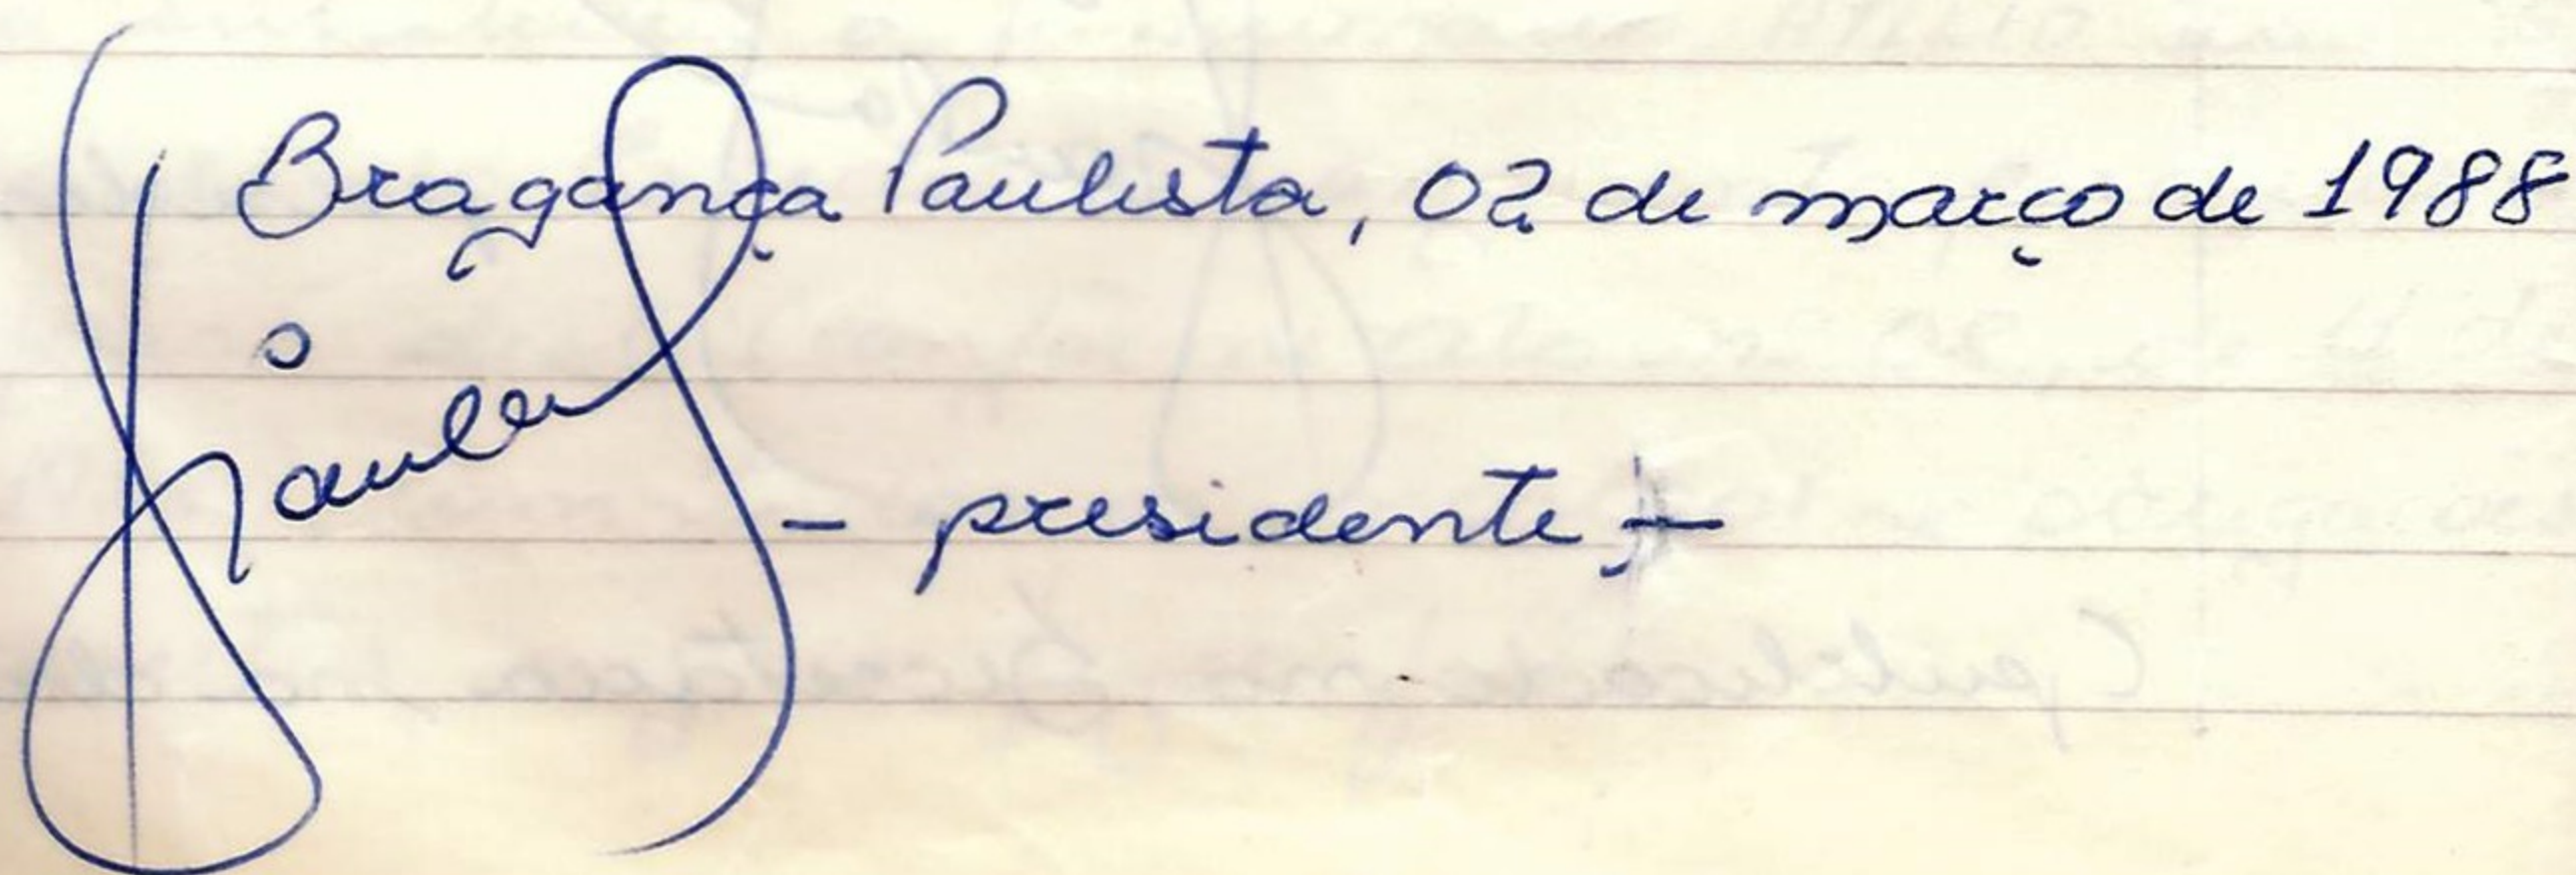 Bragança Paulista, 02 de março de 1988
- presidente, -